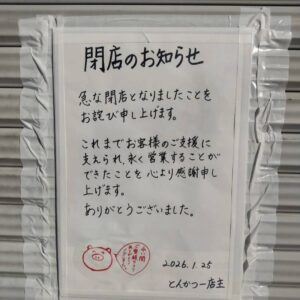 閉店のお知らせ
急な閉店となりましたことを
お詫び申し上げます。
これまでお客様のご支援に
支えられ、永く営業することが
できたことを心より感謝申し
上げます。
ありがとうございました。
2026.1.25
とんかつ一店主